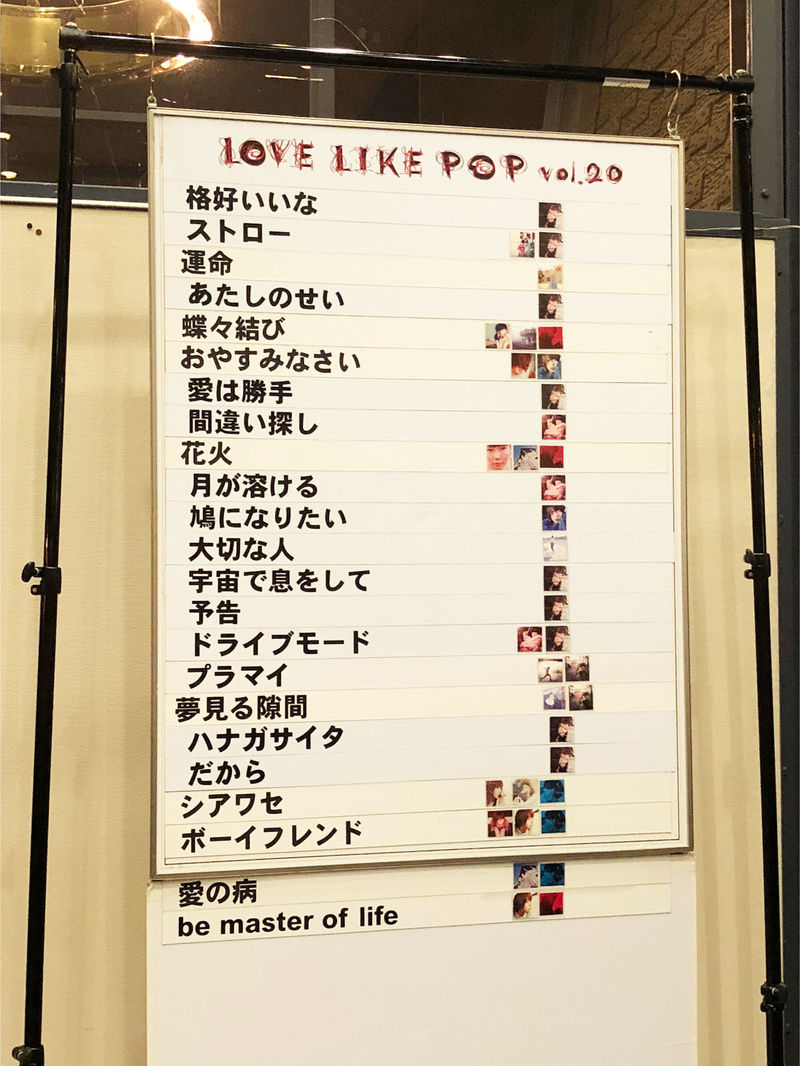 LOVE LIKE POP vol.20
格好いいな
ストロー
運命
あたしのせい
蝶々結び
おやすみなさい
愛は勝手
間違い探し
花火
月が溶ける
鳩になりたい
大切な人
宇宙で息をして
予告
ドライブモード
プラマイ
夢見る隙間
ハナガサイタ
だから
シアワセ
ボーイフレンド
愛の病
be master of life